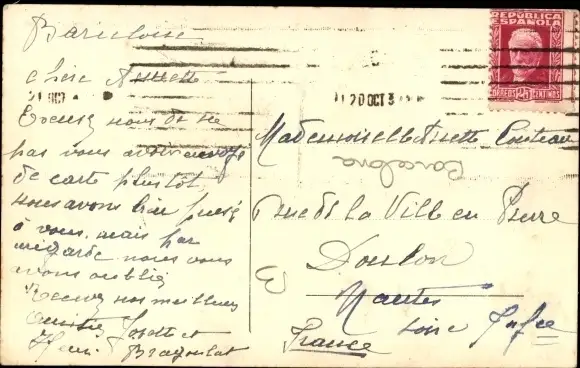 Barcelone
Chère Annette
Excusez nous de ne
pas vous avoir envoyé
de carte plustôt,
nous avons bien pensé
à vous, mais par
mégarde nous vous
avons oublié
Recevez nos meilleures
amitiés Josette et
Henri
REPÚBLICA
ESPAÑOLA
CORREOS 25 CENTIMOS
21 OCT
20 OCT 3
Mademoiselle
Barcelona
Rue de la Ville en Pierre
Doulon
Nantes
Loire Infre
France
3